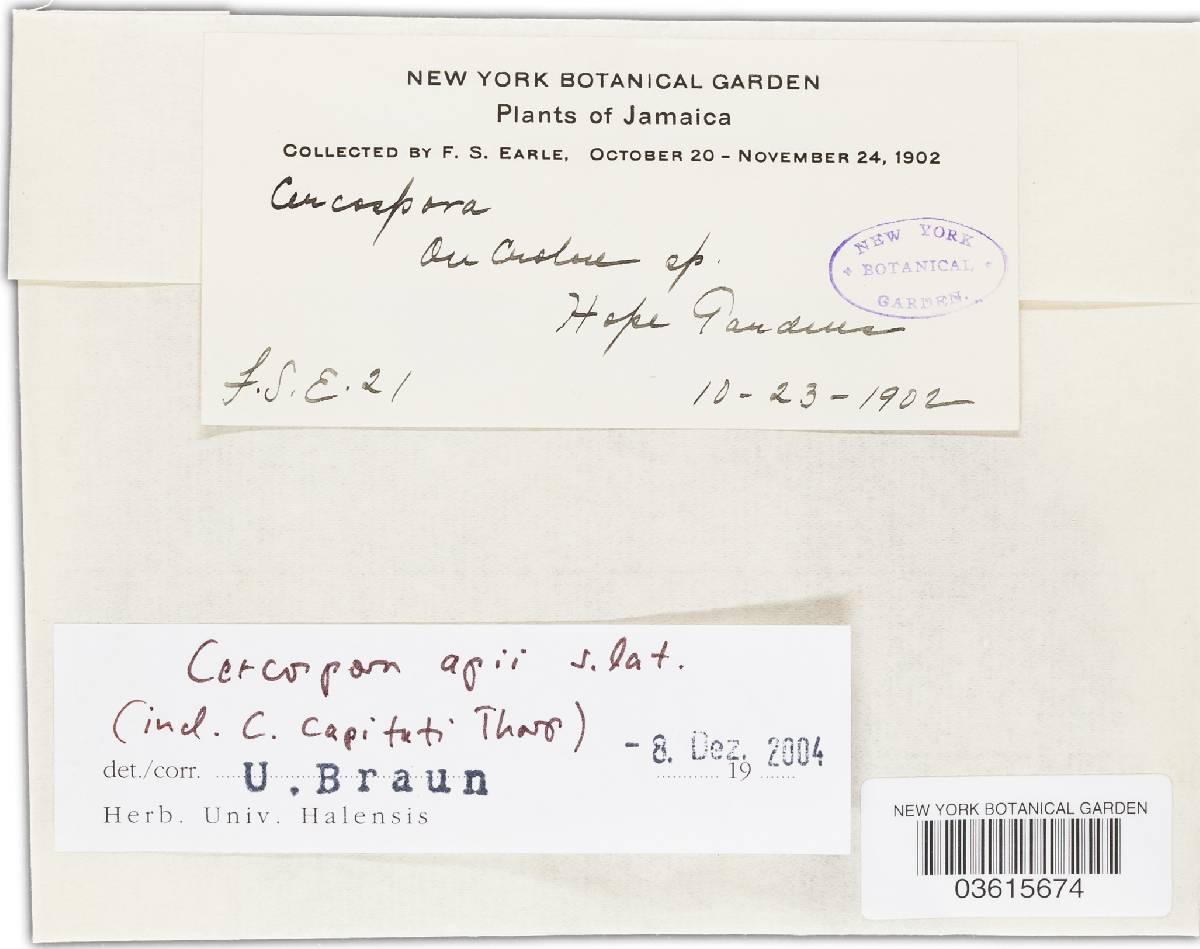 NEW YORK BOTANICAL GARDEN
Plants of Jamaica
COLLECTED BY F. S. EARLE, OCTOBER 20 - NOVEMBER 24, 1902
Cercospora
On Croton sp.
Hope Gardens
F.S.E. 21
10-23-1902
NEW YORK
BOTANICAL
GARDEN.
Cercospora apii s. lat.
(incl. C. capitati Tharp)
det./corr. U. Braun
- 8. Dez. 2004
19
Herb. Univ. Halensis
NEW YORK BOTANICAL GARDEN
03615674